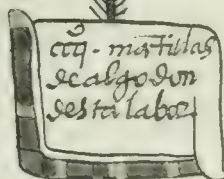 mātillas
de algodon
desta labor